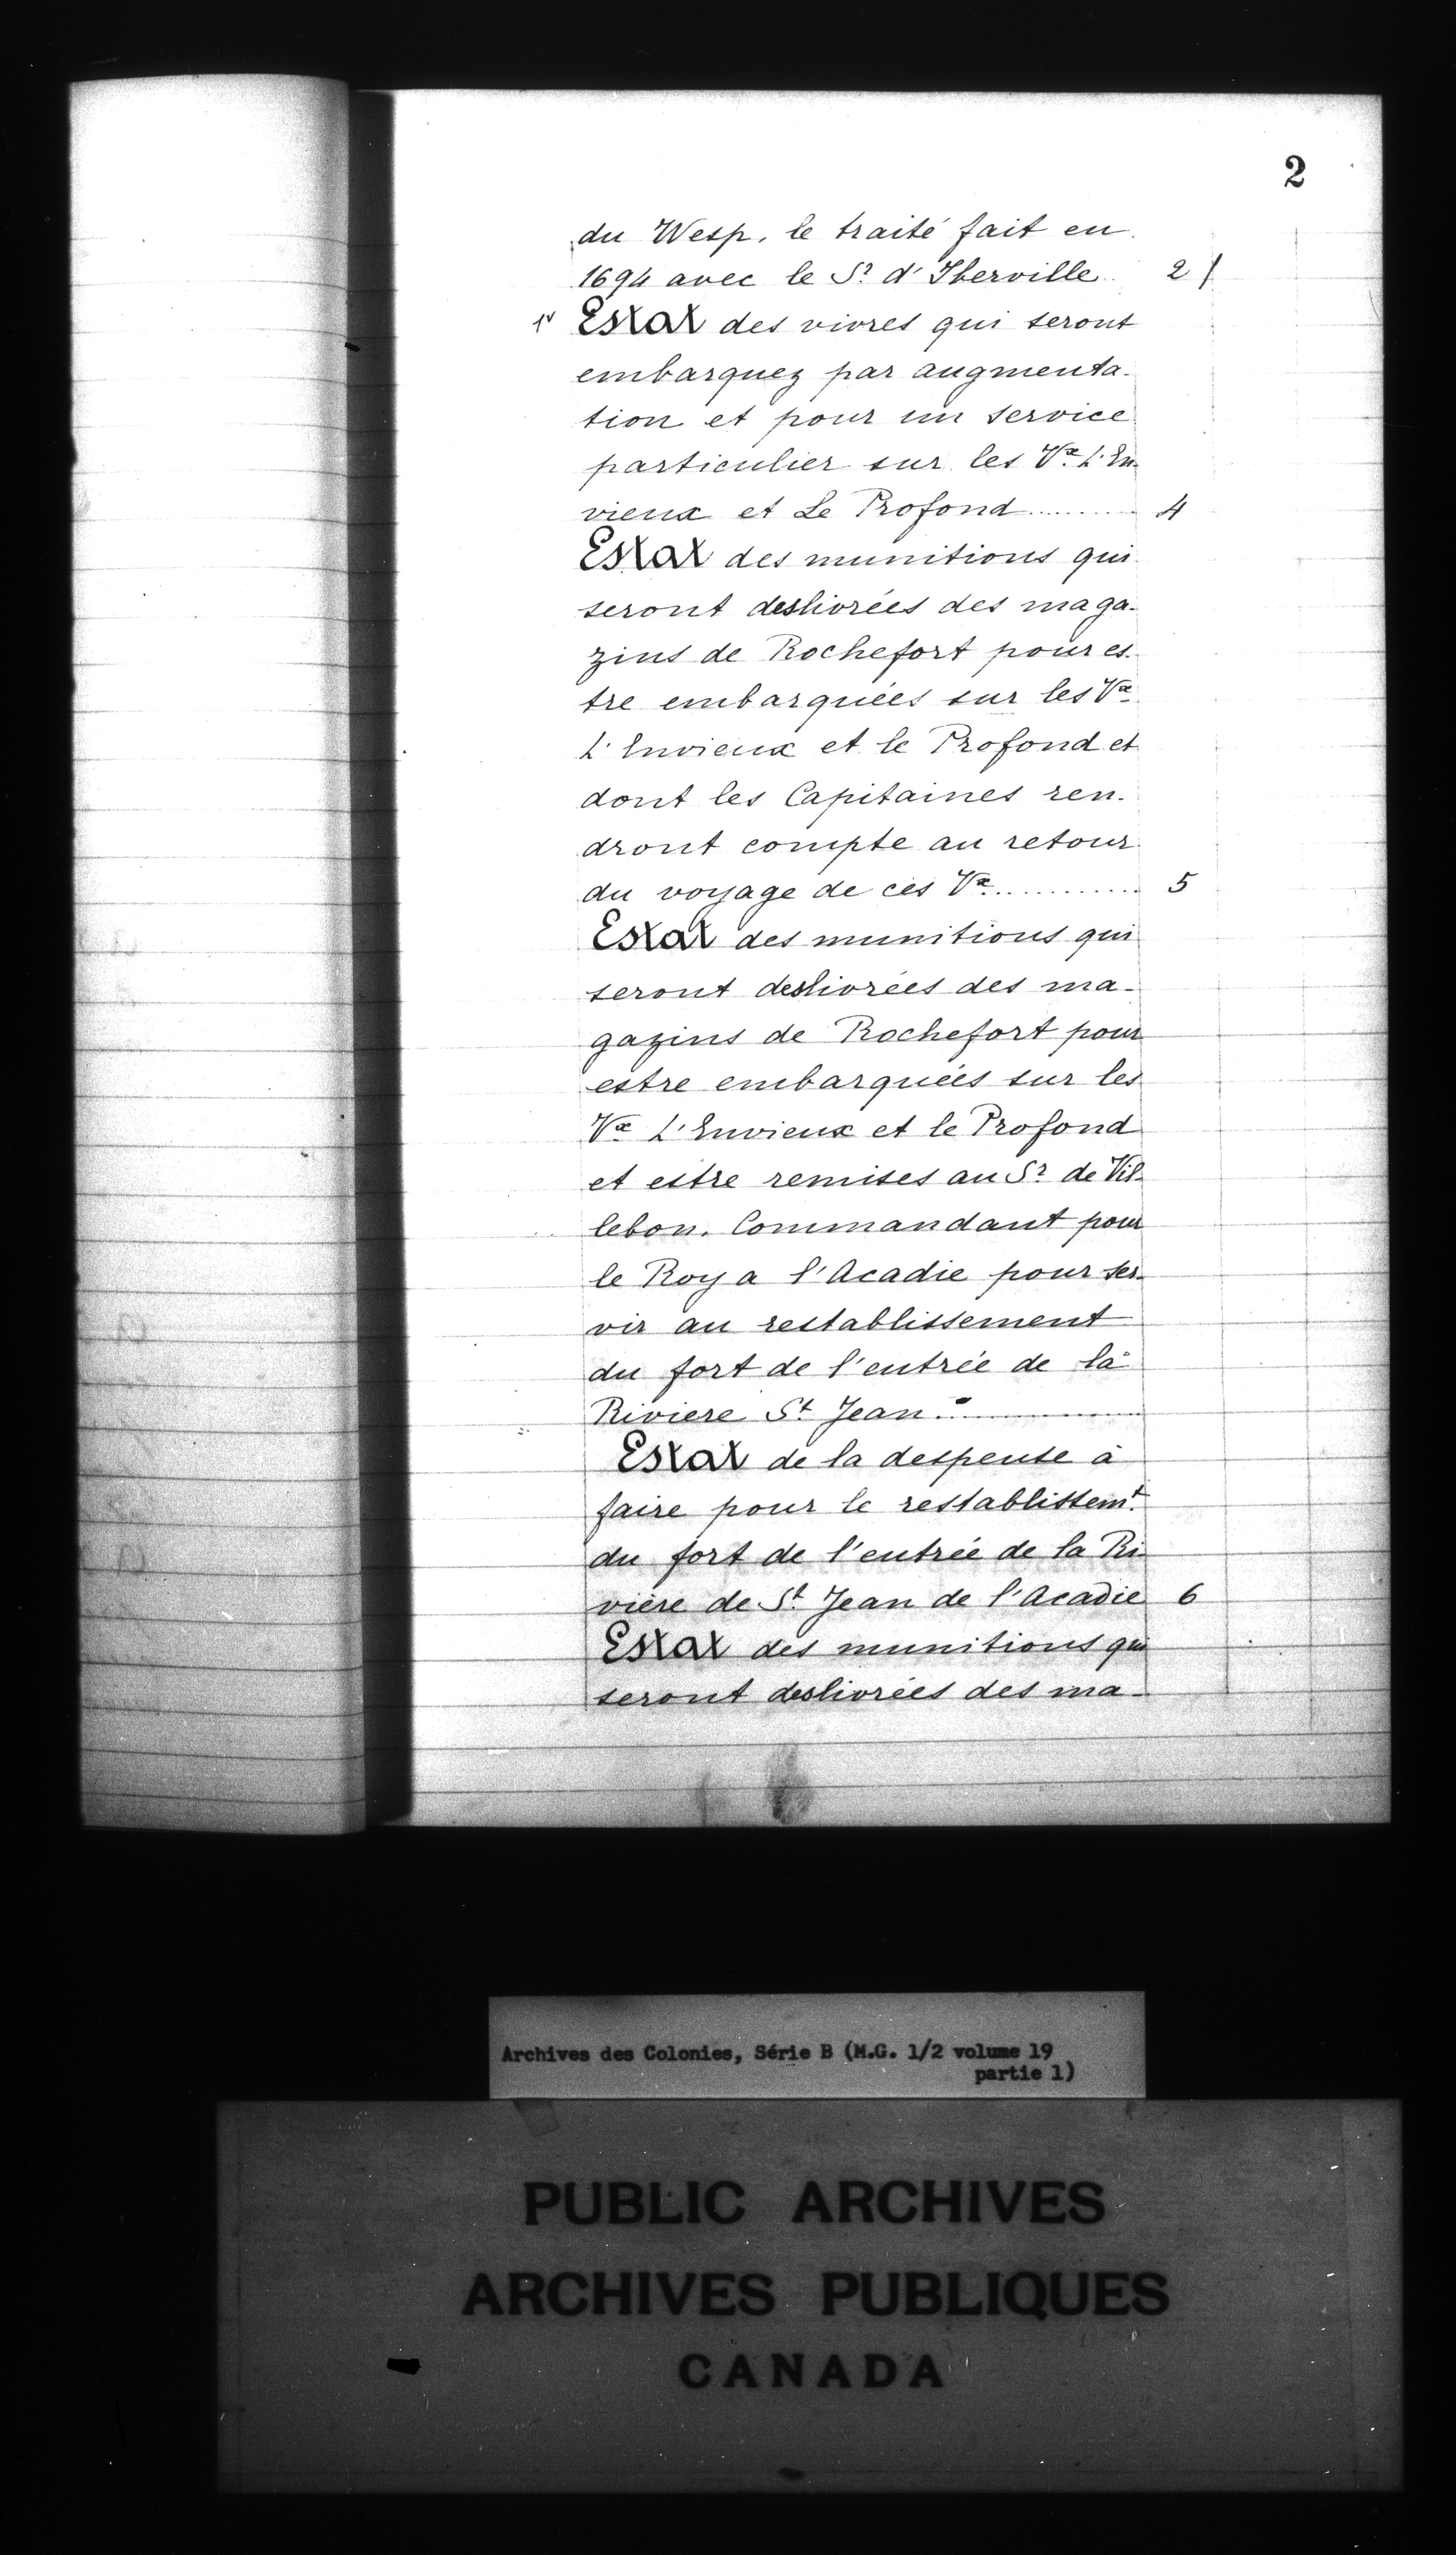 2
du Wesp. le traité fait en
1694 avec le Sr d'Iberville .. 2
Estat des vivres qui seront
embarquez par augmenta-
tion et pour un service
particulier sur les Vx L'En-
vieux et Le Profond ......... 4
Estat des munitions qui
seront deslivrées des maga-
zins de Rochefort pour es-
tre embarquées sur les Vx
L'Envieux et le Profond et
dont les Capitaines ren-
dront compte au retour
du voyage de ces Vx ............ 5
Estat des munitions qui
seront deslivrées des ma-
gazins de Rochefort pour
estre embarquées sur les
Vx L'Envieux et le Profond
et estre remises au Sr de Vil-
lebon. Commandant pour
le Roy a l'Acadie pour ser-
vir au restablissement
du fort de l'entrée de la
Riviere St Jean ..............
Estat de la despense à
faire pour le restablissemt
du fort de l'entrée de la Ri-
vière de St Jean de l'Acadie 6
Estat des munitions qui
seront deslivrées des ma-
Archives des Colonies, Série B (M.G. 1/2 volume 19
partie 1)
PUBLIC ARCHIVES
ARCHIVES PUBLIQUES
CANADA